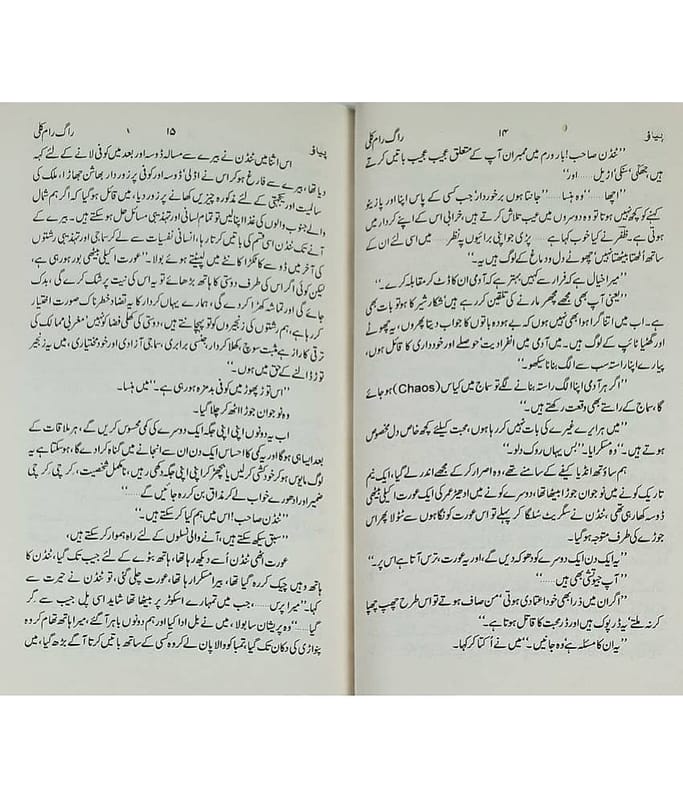 پیاؤ ۱۴ راگ رام کلی
’’ٹنڈن صاحب! بار روم میں ممبران آپ کے متعلق عجیب عجیب باتیں کرتے
ہیں، جھکّی‘ سنکی‘ اڑیل ...... اور‘‘
’’اچھا‘‘ ...... ’’وہ ہنسا ...... ’’جانتا ہوں برخوردار‘ جب کسی کے پاس اپنا اور پازیٹو
کہنے کو کچھ نہیں ہوتا تو وہ دوسروں میں عیب تلاش کرتے ہیں، خرابی اس کے اپنے کردار میں
ہوتی ہے۔ ظفر نے کیا خوب کہا ہے ...... پڑی جو اپنی برائیوں پہ نظر ...... میں اسی لئے ان کے
ساتھ اٹھتا بیٹھتا نہیں‘ چھوٹے دل و دماغ کے لوگ ہیں یہ۔‘‘
’’میرا خیال ہے کہ فرار سے کہیں بہتر ہے کہ آدمی ان کا ڈٹ کر مقابلہ کرے۔‘‘
’’یعنی آپ بھی مجھے مچھر مارنے کی تلقین کر رہے ہیں‘ شکار شیر کا ہو تو بات بھی
ہے۔ اب میں اتنا گرا ہوا بھی نہیں ہوں کہ بے ہودہ باتوں کا جواب دیتا پھروں، یہ چھوٹے
اور گھٹیا ٹائپ کے لوگ ہیں۔ میں آدمی میں انفرادیت‘ حوصلے اور خودداری کا قائل ہوں،
پیارے اپنا راستہ سب سے الگ بنانا سیکھو۔‘‘
’’اگر ہر آدمی اپنا الگ راستہ بنانے لگے تو سماج میں کیاس (Chaos) ہو جائے
گا، سماج کے راستے بھی وقعت رکھتے ہیں۔‘‘
’’میں ہر ایرے غیرے کی بات نہیں کر رہا ہوں، محبت کیلئے کچھ خاص دل مخصوص
ہوتے ہیں۔‘‘ وہ مسکرایا۔ ’’بس یہاں روک دو۔‘‘
ہم ساؤتھ انڈیا کیفے کے سامنے تھے، وہ اصرار کر کے مجھے اندر لے گیا، ایک نیم
تاریک کونے میں نوجوان جوڑا بیٹھا تھا، دوسرے کونے میں ادھیڑ عمر کی ایک عورت اکیلی بیٹھی
ڈوسہ کھا رہی تھی، ٹنڈن نے سگریٹ سلگا کر پہلے تو اس عورت کو نگاہوں سے ٹٹولا پھر اس
جوڑے کی طرف متوجہ ہو گیا۔
’’یہ ایک دن ایک دوسرے کو دھوکہ دیں گے، اور یہ عورت، ترس آتا ہے اس پر۔‘‘
’’آپ جیوتشی بھی ہیں ......‘‘
’’اگر ان میں ذرا بھی خود اعتمادی ہوتی‘ من صاف ہوتے تو اس طرح چھپ چھپا
کر نہ ملتے‘ یہ ڈرپوک ہیں اور ڈر محبت کا قاتل ہوتا ہے۔‘‘
’’یہ ان کا مسئلہ ہے‘ وہ جانیں۔‘‘ میں نے اُکتا کر کہا۔
پیاؤ ۱۵ راگ رام کلی
اس اثنا میں ٹنڈن نے بیرے سے مسالہ ڈوسہ اور بعد میں کوفی لانے کے لئے کہہ
دیا تھا، بیرے سے فارغ ہو کر اس نے اڈلی‘ ڈوسہ اور کوفی پر زوردار بھاشن جھاڑا، ملک کی
سالمیت اور یکجہتی کے لئے مذکورہ چیزیں کھانے پر زور دیا، میں قائل ہو گیا کہ اگر ہم شمال
والے جنوب والوں کی غذا اپنا لیں تو تمام لسانی اور تہذیبی مسائل حل ہو سکتے ہیں۔ بیرے کے
آنے تک ٹنڈن اسی قسم کی باتیں کرتا رہا، انسانی نفسیات سے لے کر سماجی اور تہذیبی رشتوں
کی آخر میں ڈوسے کا ٹکڑا کانٹے میں لپیٹتے ہوئے بولا۔ ’’عورت اکیلی بیٹھی بور ہو رہی ہے،
لیکن کوئی اگر اس کی طرف دوستی کا ہاتھ بڑھائے تو یہ اس کی نیت پر شک کرے گی، بدک
جائے گی اور تماشہ کھڑا کر دے گی، ہمارے یہاں کردار کا یہ تضاد خطرناک صورت اختیار
کر رہا ہے، ہم رشتوں کی زنجیروں کو تو پہچانتے ہیں، دوستی کی کھلی فضا کو نہیں‘ مغربی ممالک کی
ترقی کا راز ہے مثبت سوچ، کھلا کردار، جنسی برابری، سماجی آزادی اور خود مختاری، میں یہ زنجیر
توڑ ڈالنے کے حق میں ہوں۔‘‘
’’اس توڑ پھوڑ میں کوفی بدمزہ ہو رہی ہے۔‘‘ میں ہنسا۔
وہ نوجوان جوڑا اٹھ کر چلا گیا۔
اب یہ دونوں اپنی اپنی جگہ ایک دوسرے کی کمی محسوس کریں گے، ہر ملاقات کے
بعد ایسا ہی ہوگا اور یہ کمی کا احساس ایک دن ان سے انجانے میں گناہ کرا دے گا، ہو سکتا ہے یہ
لوگ مایوس ہو کر خودکشی کر لیں یا بچھڑ کر اپنی اپنی جگہ دکھی رہیں، نامکمل شخصیت، کرچی کرچی
ضمیر اور ادھورے خواب لے کر مذاق بن کر رہ جائیں گے ......‘‘
’’ٹنڈن صاحب! اس میں ہم کیا کر سکتے ہیں۔‘‘
’’سبق سیکھ سکتے ہیں، آنے والی نسلوں کے لئے راہ ہموار کر سکتے ہیں،
عورت اٹھی‘ ٹنڈن اُسے دیکھ رہا تھا، ہاتھ بٹوے کے لئے جیب تک گیا، ٹنڈن کا
ہاتھ وہیں چپک کر رہ گیا تھا، بیرا مسکرا رہا تھا، عورت چلی گئی، تو ٹنڈن نے حیرت سے
کہا۔ ’’میرا پرس ......، جب میں تمہارے اسکوٹر پر بیٹھا تھا شاید اسی پل جیب سے گِر
گیا ......‘‘ وہ پریشان سا بولا، میں نے بل ادا کیا اور ہم دونوں باہر آ گئے، میرا ہاتھ تھام کر وہ
پنواڑی کی دکان تک گیا، تمباکو والا پان لے کر وہ کسی کے ساتھ باتیں کرتا آگے بڑھ گیا، میں